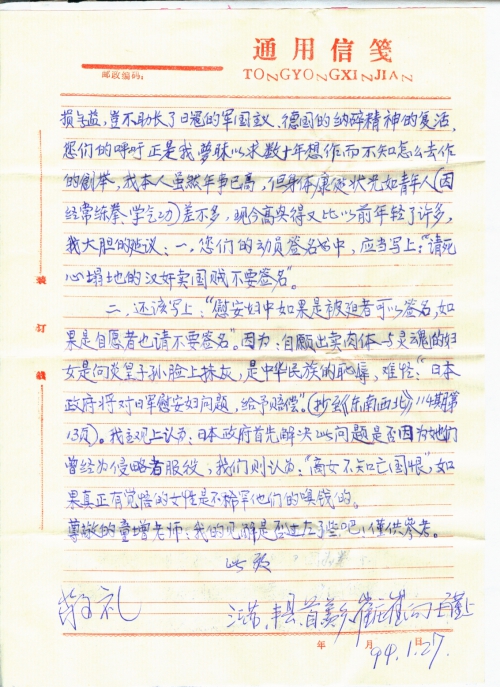 通用信笺
邮政编码：
TONGYONGXINJIAN
损与益，岂不助长了日寇的军国主义、德国的纳粹精神的复活，
您们的呼吁正是我梦昧以求数十年想作而不知怎么去作
的创举，我本人虽然年事已高，但身体康健状况如青年人（因
经常练拳、学气功）差不多，现今高兴得又比以前年轻了许多，
我大胆的建议：一，您们的动员签名书中，应当写上：“请死
心塌地的汉奸卖国贼不要签名”。
二，还该写上：“慰安妇中如果是被迫者可以签名，如
果是自愿者也请不要签名”。因为：自愿出卖肉体与灵魂的妇
女是向炎皇子孙脸上抹灰，是中华民族的耻辱，难怪：“日本
政府将对日军慰安妇问题，给予赔偿”。（抄《东南西北》114期第
13页）。我主观上认为：日本政府首先解决此问题是否因为她们
曾经为侵略者服役，我们则认为：“商女不知亡国恨”，如
果真正有觉悟的女性是不稀罕他们的嗅钱的。
尊敬的童增老师：我的见解是否过左了些吧！仅供参考。
此致
敬礼
江苏、丰县、首羡乡
94.1.27.
年 月 日
装
订
线